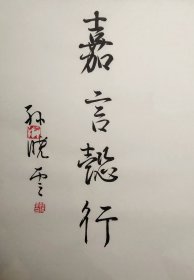 嘉言懿行
孙晓云